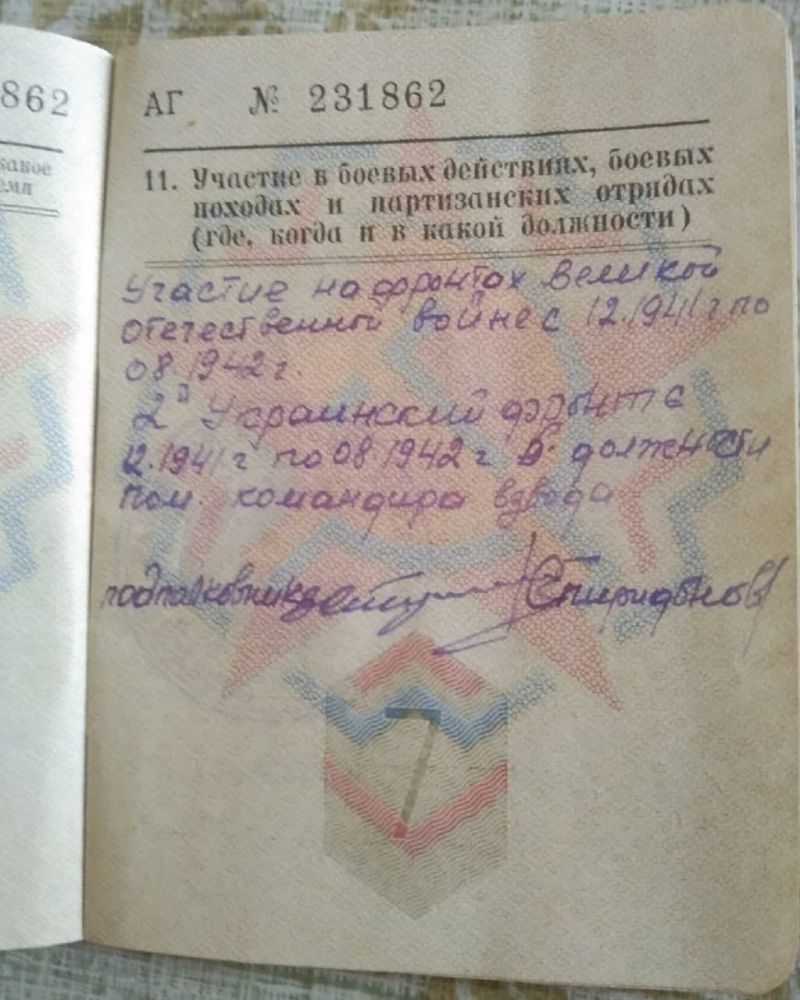 862
АГ № 231862
какое
емя
11. Участие в боевых действиях, боевых
походах и партизанских отрядах
(где, когда и в какой должности)
Участие на фронтах Великой
отечественной войне с 12.1941 г по
08 1942 г.
2й Украинский фронт с
12.1941 г по 08 1942 г в должности
пом. командира взвода
подполковник Спиридонов
7